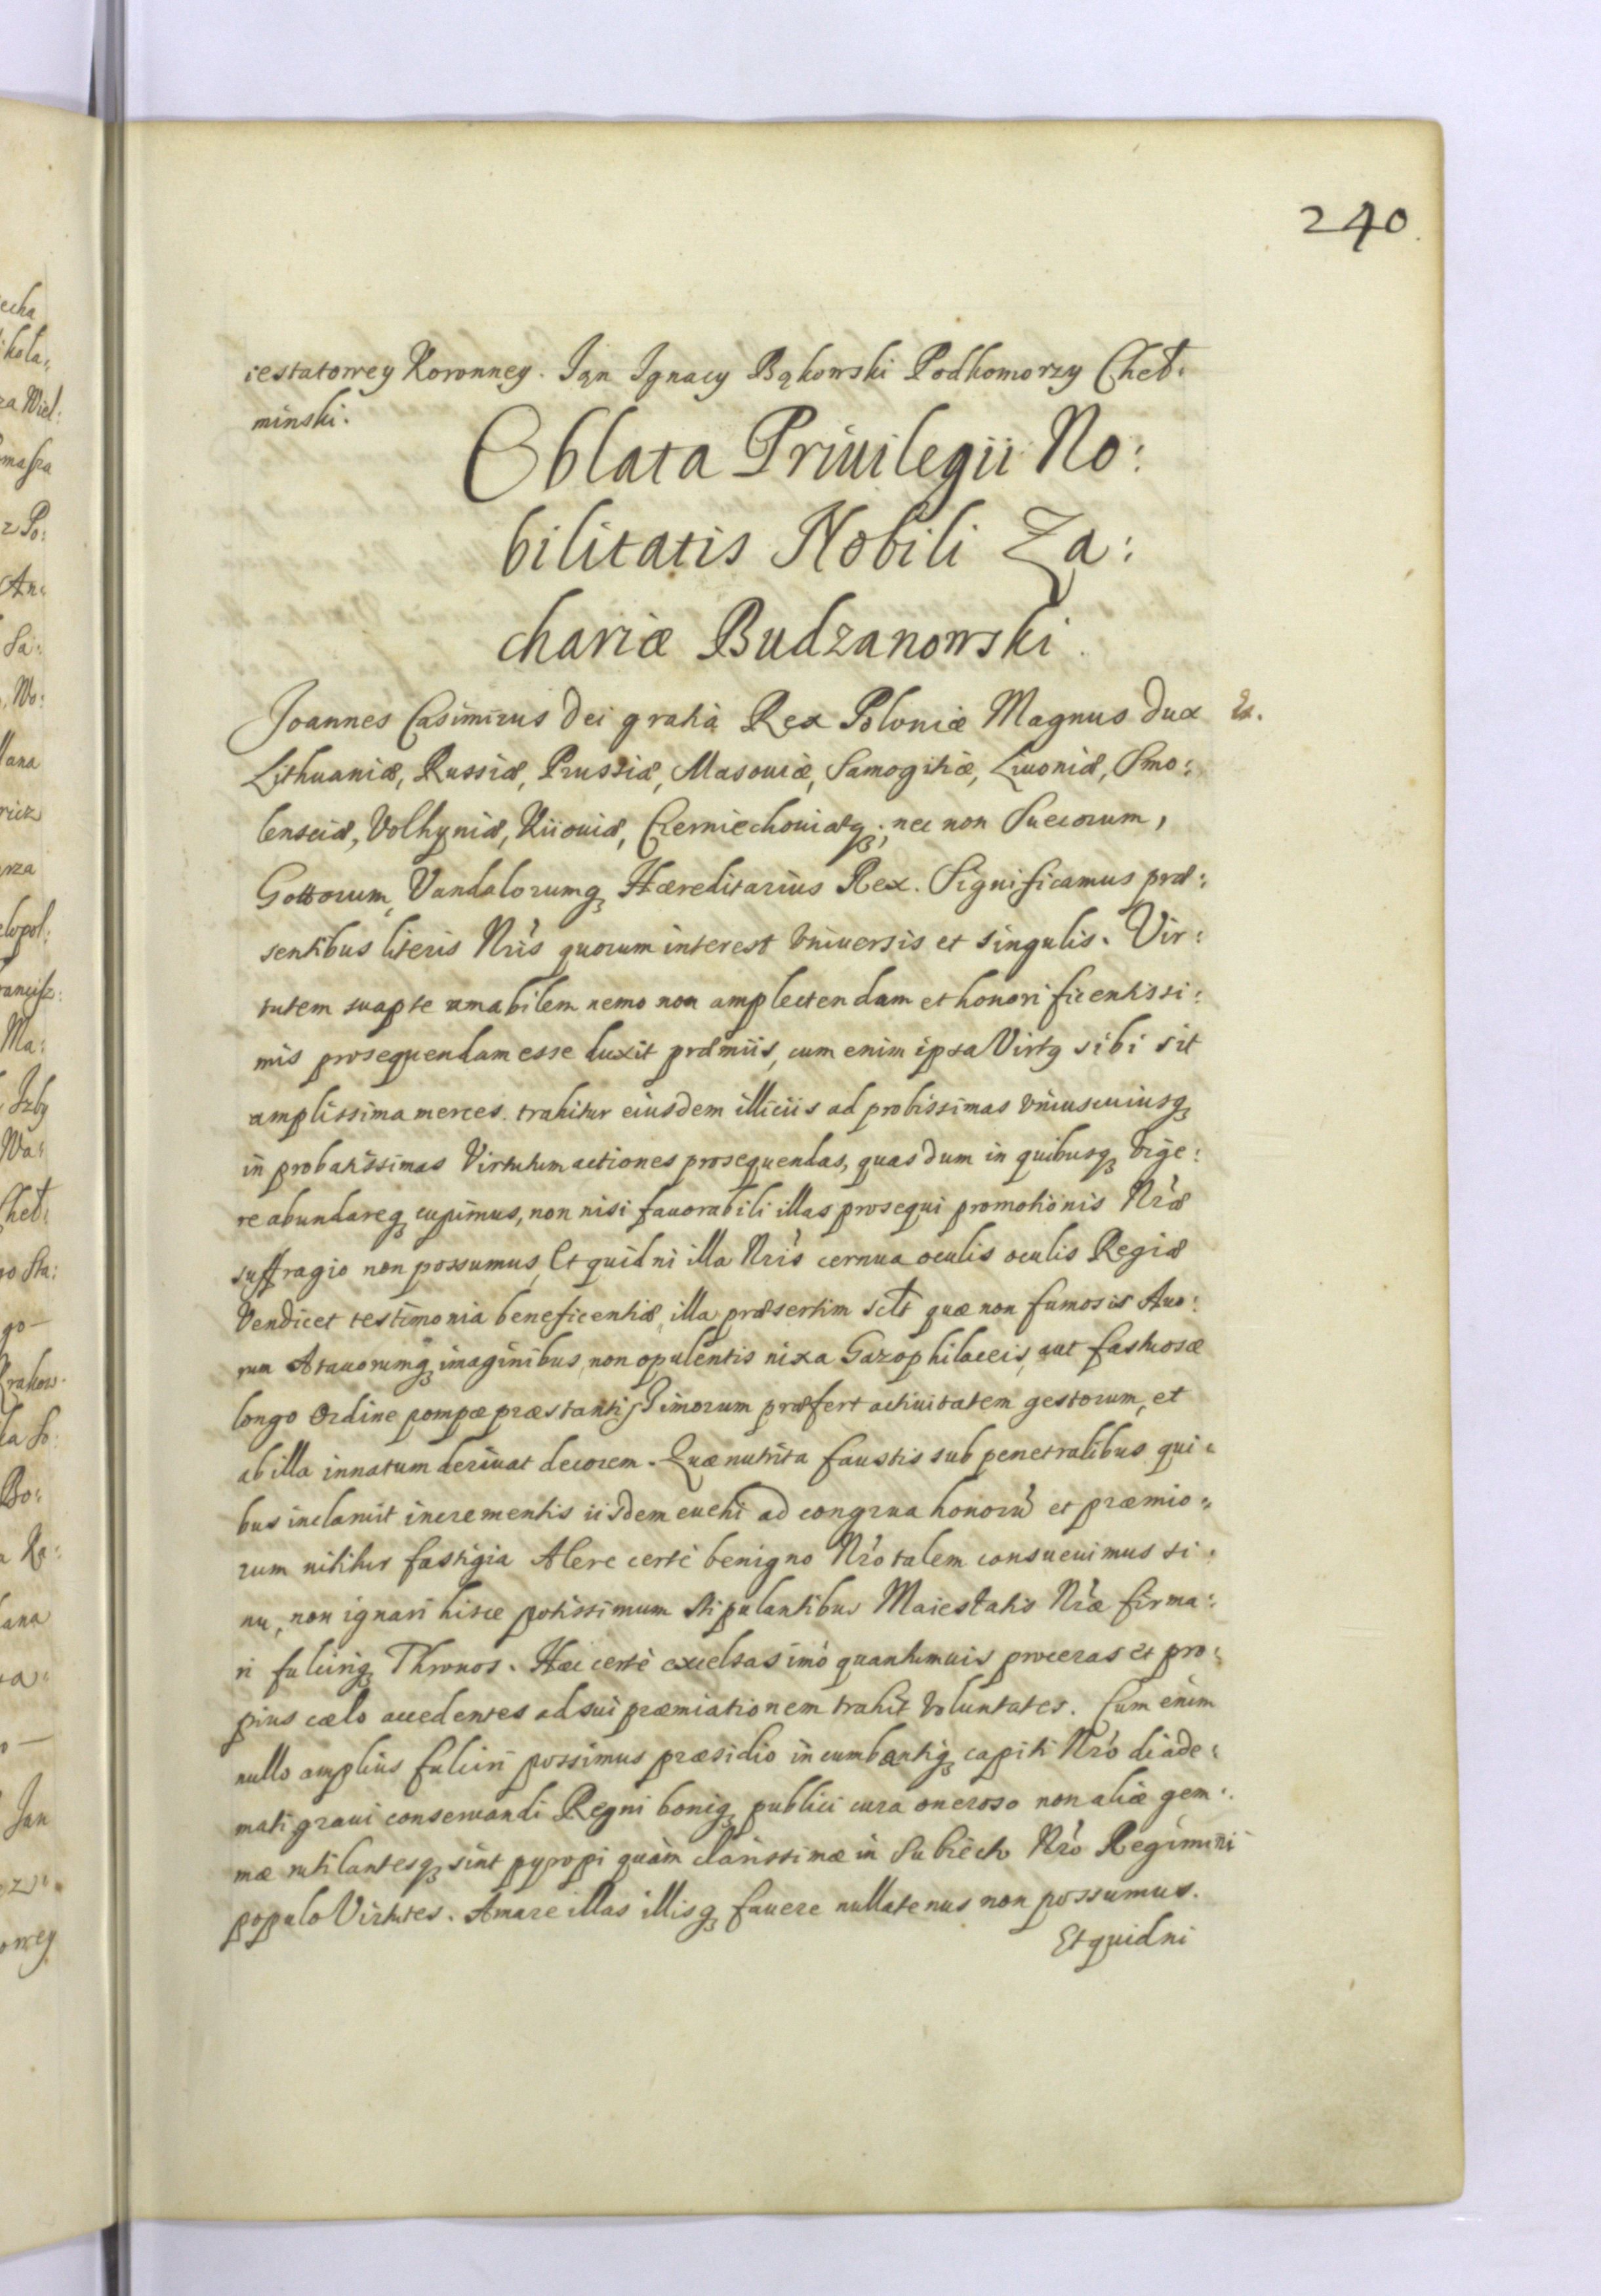 240
iestatowey Koronney. Jan Ignacy Bąkowski Podkomorzy Cheł:
minski.
Oblata Priuilegii No:
bilitatis Nobili Za:
chariæ Budzanowski.
Joannes Casimirus Dei gratia Rex Poloniæ Magnus Dux
Lithuaniæ, Russiæ, Prussiæ, Masouiæ, Samogitiæ, Liuoniæ, Smo:
lensciæ, Volhyniæ, Kiiouiæ, Czerniechouiæq;, nec non Suecorum,
Gottorum, Vandalorumq; Hæreditarius Rex. Significamus præ:
sentibus literis Nris quorum interest Vniuersis et singulis. Vir:
tutem suapte amabilem nemo non amplectendam et honorificentissi:
mis prosequendam esse duxit præmiis, cum enim ipsa Virtq sibi sit
amplissima merces. trahitur eiusdem illiciis ad probissimas vniuscuiusq;
in probatissimas Virtutum actiones prosequendas, quas dum in quibusq; vige:
re abundareq; cupimus, non nisi fauorabili illas prosequi promotionis Nræ
suffragio non possumus, Et quidni illa Nris cernua oculis oculis Regiæ
Vendicet testimonia beneficentiæ, illa præsertim sclt quæ non fumosis Auo:
rum Atauorumq; imaginibus, non opulentis nixa Gazophilaceis, aut fastuosæ
longo Ordine pompæ præstantissimorum præfert actiuitatem gestorum, et
ab illa innatum deriuat decorem. Quæ nutrita faustis sub penetralibus qui:
bus inclaruit incrementis iisdem euehi ad congrua honorũ et præmio:
rum nititur fastigia Alere certè benigno Nro talem consueuimus si:
nu, non ignari hisce potissimum stipulantibus Maiestatis Nræ firma:
ri fulciriq; Thronos. Hæc certè excelsas imò quantumuis proceras et pro:
pius cælo accedentes ad sui præmiationem trahit voluntates. Cum enim
nullo amplius fulciri possimus præsidio incumbantiq; capiti Nro diade:
mati graui conseruandi Regni boniq; publici cura oneroso non aliæ gem:
mæ rutilantesq; sint pyropi quàm clarissimæ in Subiecto Nro Regimini
populo Virtutes. Amare illas illisq; fauere nullatenus non possumus.
Et quidni